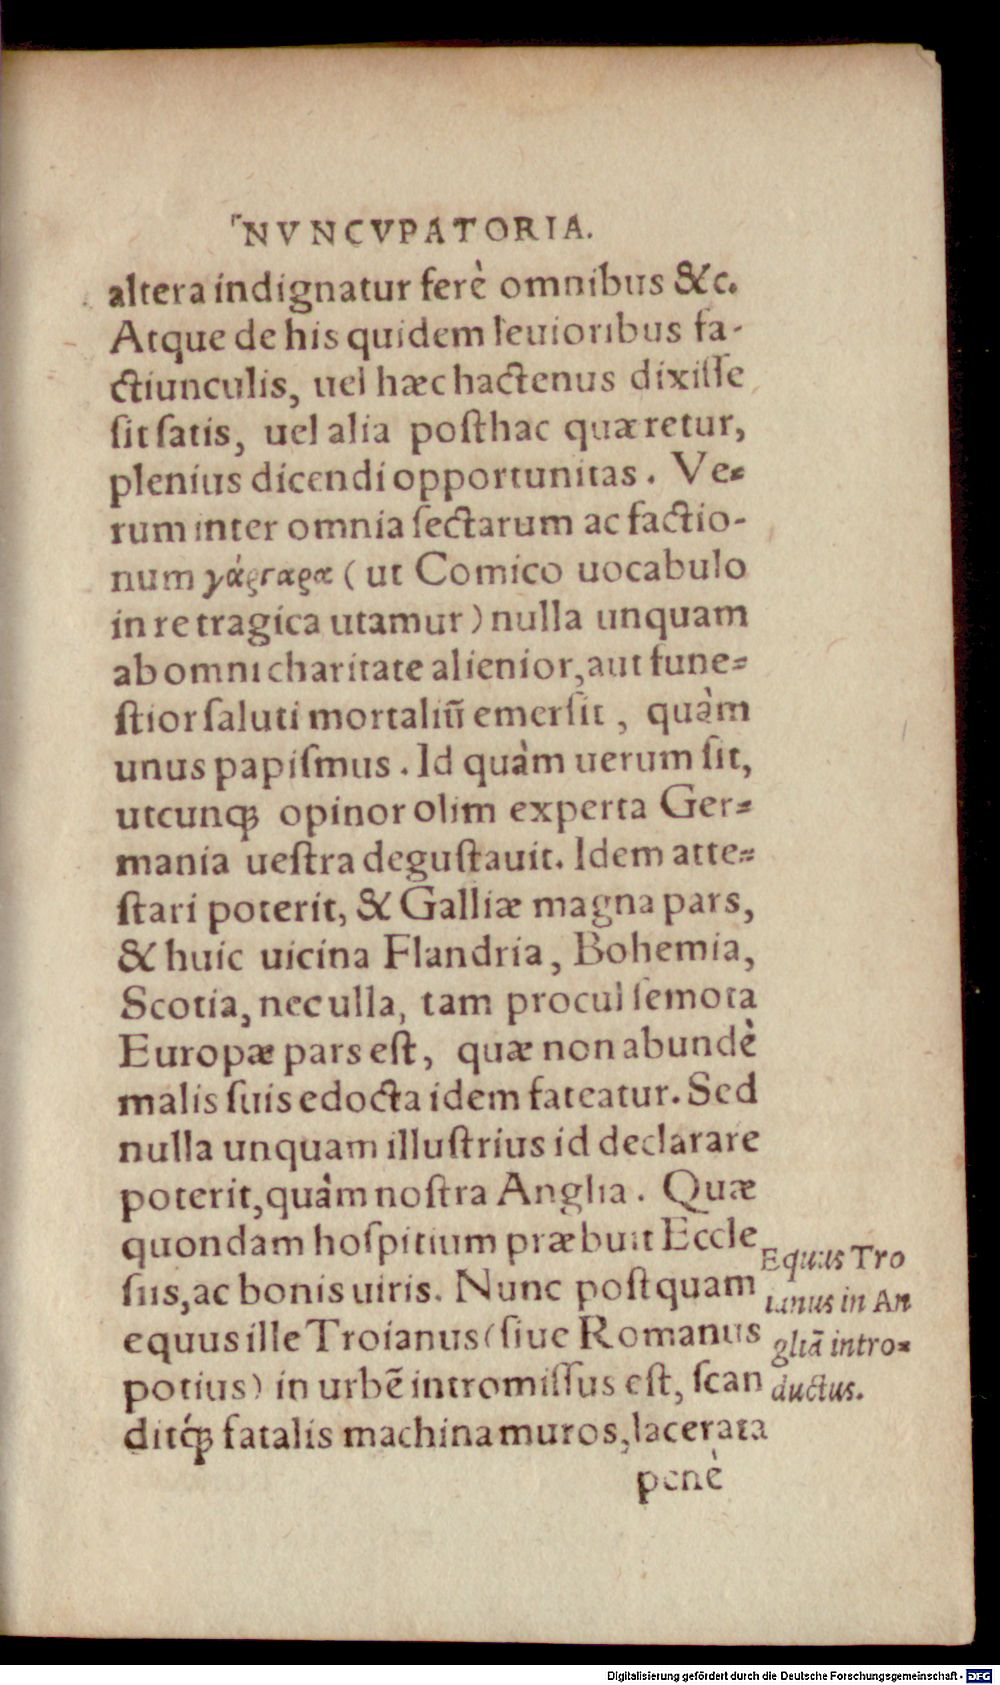 NVNCVPATORIA.
altera indignatur ferè omnibus &c.
Atque de his quidem leuioribus fa-
ctiunculis, uel hæc hactenus dixisse
sit satis, uel alia posthac quæretur,
plenius dicendi opportunitas. Ve-
rum inter omnia sectarum ac factio-
num γάργαρα (ut Comico uocabulo
in re tragica utamur) nulla unquam
ab omni charitate alienior, aut fune-
stior saluti mortaliũ emersit, quàm
unus papismus. Id quàm uerum sit,
utcunq; opinor olim experta Ger-
mania uestra degustauit. Idem atte-
stari poterit, & Galliæ magna pars,
& huic uicina Flandria, Bohemia,
Scotia, nec ulla, tam procul semota
Europæ pars est, quæ non abundè
malis suis edocta idem fateatur. Sed
nulla unquam illustrius id declarare
poterit, quàm nostra Anglia. Quæ
quondam hospitium præbuit Eccle
siis, ac bonis uiris. Nunc postquam
equus ille Troianus (siue Romanus
potius) in urbẽ intromissus est, scan
ditq́; fatalis machina muros, lacerata
penè
Equus Tro
ianus in An
gliã intro-
ductus.
Digitalisierung gefördert durch die Deutsche Forschungsgemeinschaft - DFG